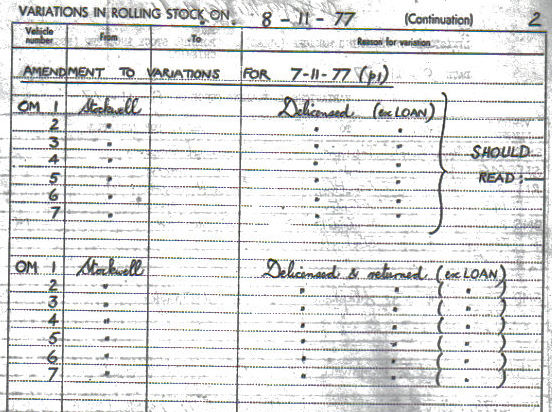 VARIATIONS IN ROLLING STOCK ON 8 - 11 - 77 (Continuation) 2
Vehicle number From To Reason for variation
AMENDMENT TO VARIATIONS FOR 7-11-77 (p1)
OM 1 Stockwell Delicensed (ex LOAN)
2 " " "
3 " " "
4 " " " SHOULD
5 " " " READ:—
6 " " "
7 " " "
OM 1 Stockwell Delicensed & returned (ex LOAN)
2 " " " ( " )
3 " " " ( " )
4 " " " ( " )
5 " " " ( " )
6 " " " ( " )
7 " " " ( " )